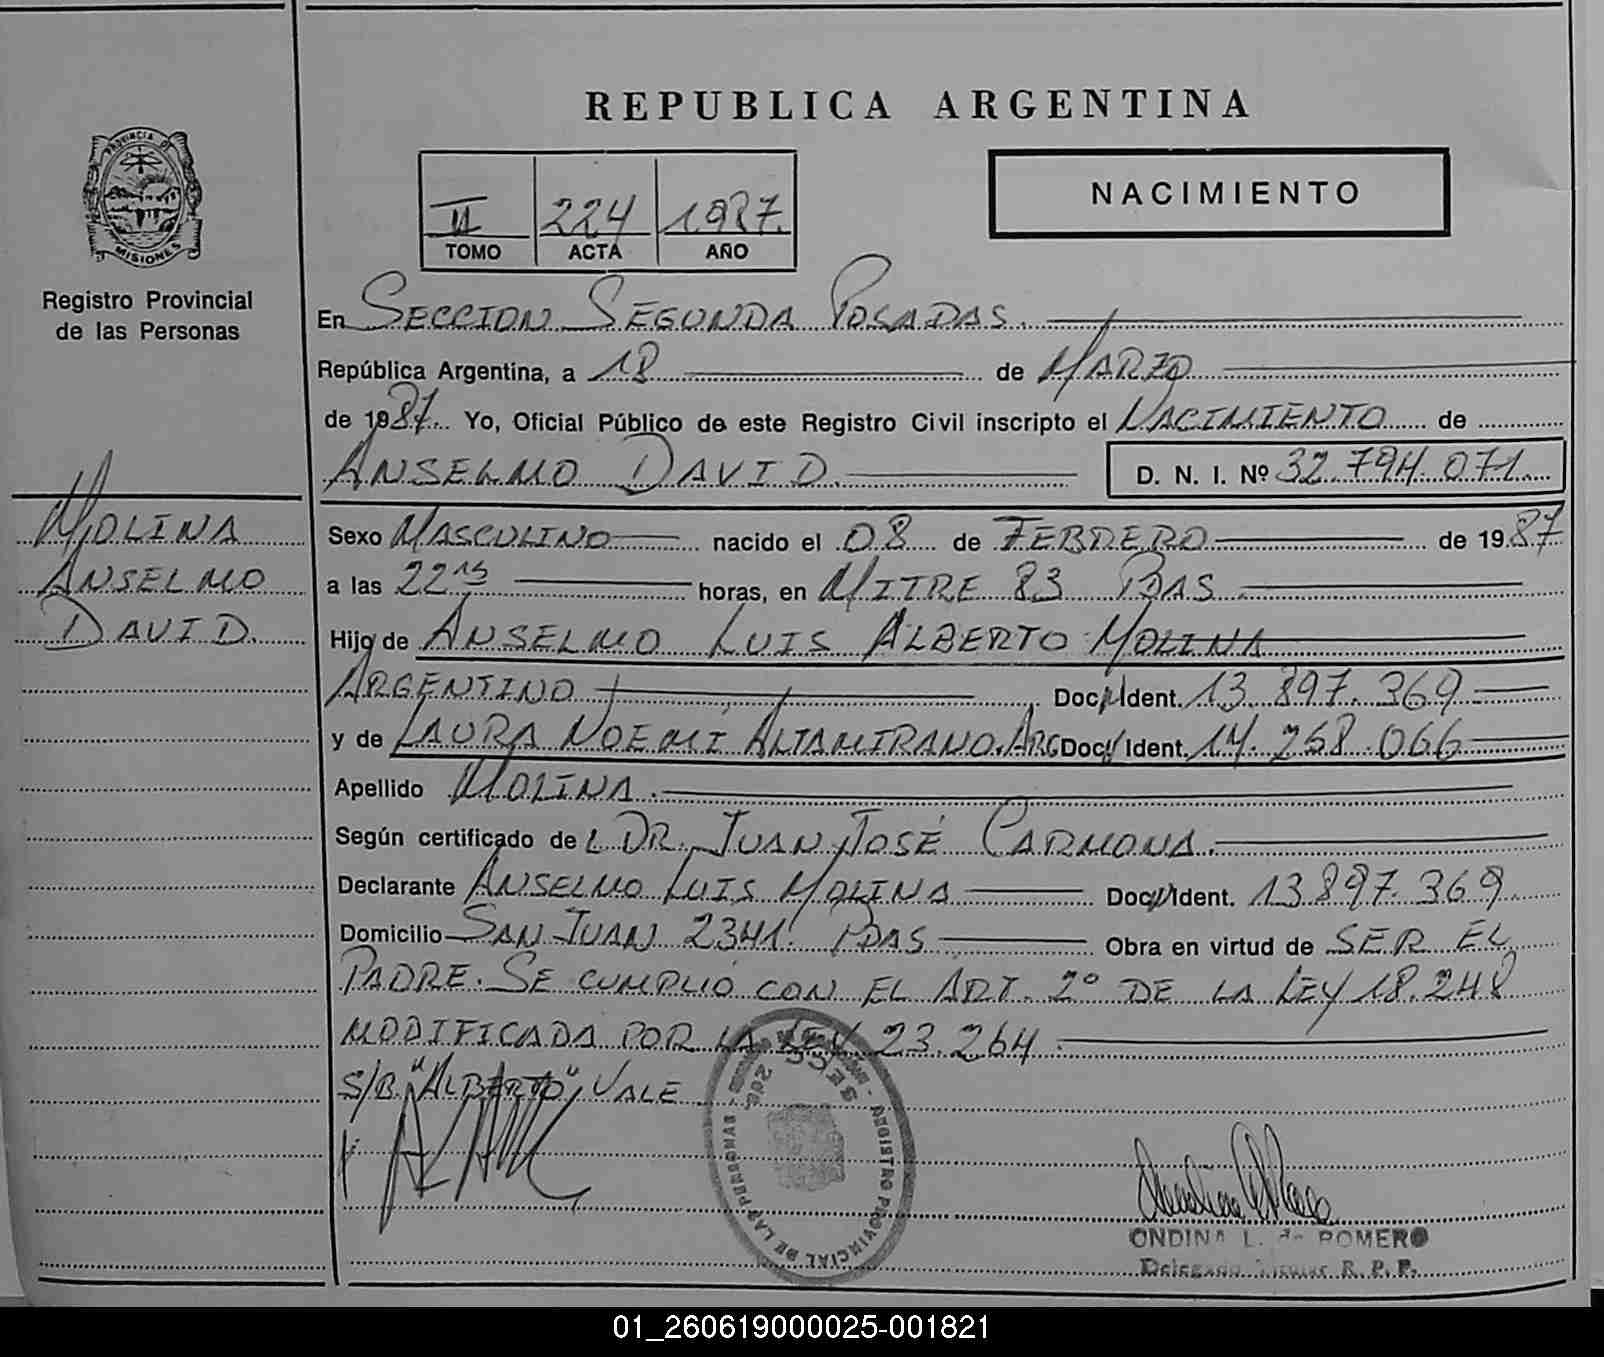 REPUBLICA ARGENTINA
PROVINCIA DE
MISIONES
Registro Provincial
de las Personas
II 224 1987.
TOMO ACTA AÑO
NACIMIENTO
En SECCION SEGUNDA POSADAS.
República Argentina, a 18 de MARZO
de 1987. Yo, Oficial Público de este Registro Civil inscripto el NACIMIENTO de
ANSELMO DAVID. D. N. I. Nº 32.794.071.
MOLINA
ANSELMO
DAVID.
Sexo MASCULINO nacido el 08 de FEBRERO de 1987
a las 22 15 horas, en MITRE 83 PDAS
Hijo de ANSELMO LUIS ALBERTO MOLINA
ARGENTINO Doc. Ident. 13.897.369
y de LAURA NOEMI ALTAMIRANO.ARG Doc. Ident. 14.268.066
Apellido MOLINA.
Según certificado de L DR. JUAN JOSÉ CARMONA.
Declarante ANSELMO LUIS MOLINA Doc. Ident. 13897.369.
Domicilio SAN JUAN 2341. PDAS Obra en virtud de SER EL
PADRE. SE CUMPLIÓ CON EL ART. 2º DE LA LEY 18.248
MODIFICADA POR LA LEY 23.264.
S/B. "ALBERTO" VALE
SECC 2da.
REGISTRO PROVINCIAL DE LAS PERSONAS
ONDINA L. de ROMERO
Delegado Titular R. P. P.
01_260619000025-001821